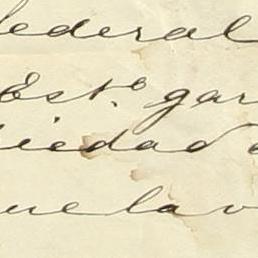 federal
Est.o gar
iedad
ue lav